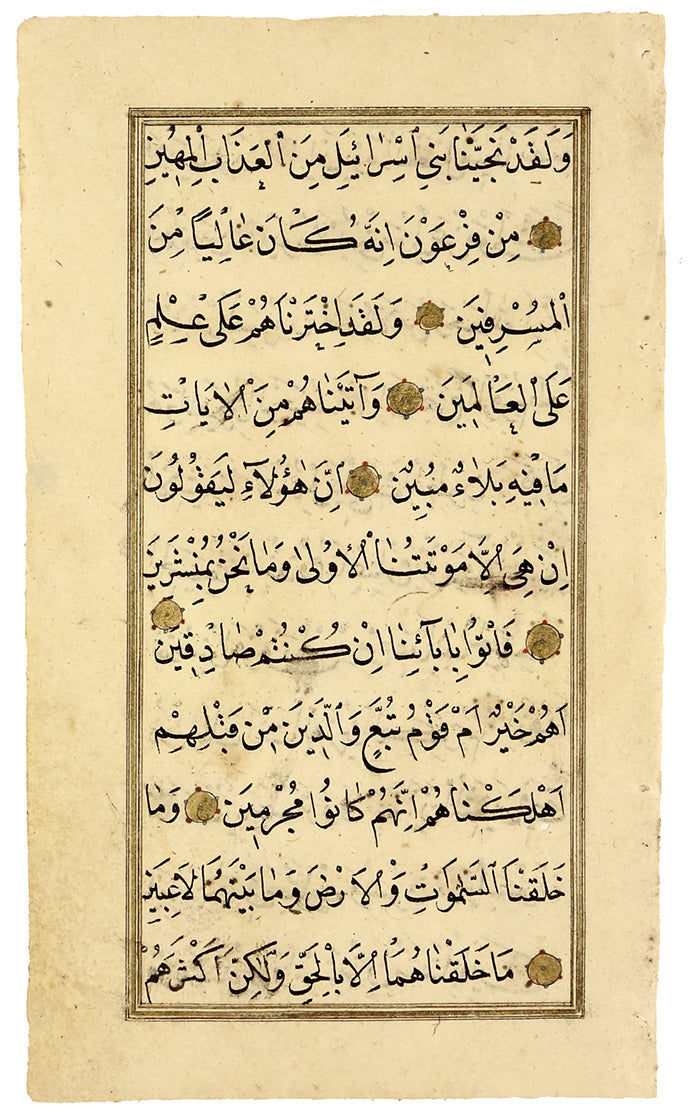 وَلَقَدْ نَجَّيْنَا بَنِي اِسْرَائِيلَ مِنَ الْعَذَابِ الْمُهِينِ
مِنْ فِرْعَوْنَ اِنَّهُ كَانَ عَالِيًا مِنَ
الْمُسْرِفِينَ وَلَقَدِ اخْتَرْنَاهُمْ عَلَى عِلْمٍ
عَلَى الْعَالَمِينَ وَآتَيْنَاهُمْ مِنَ الْاٰيَاتِ
مَا فِيهِ بَلَاءٌ مُبِينٌ اِنَّ هٰؤُلَآءِ لَيَقُولُونَ
اِنْ هِيَ اِلَّا مَوْتَتُنَا الْاُولٰى وَمَا نَحْنُ بِمُنْشَرِينَ
فَاْتُوا بِاٰبَآئِنَا اِنْ كُنْتُمْ صَادِقِينَ
اَهُمْ خَيْرٌ اَمْ قَوْمُ تُبَّعٍ وَالَّذِينَ مِنْ قَبْلِهِمْ
اَهْلَكْنَاهُمْ اِنَّهُمْ كَانُوا مُجْرِمِينَ وَمَا
خَلَقْنَا السَّمٰوَاتِ وَالْاَرْضَ وَمَا بَيْنَهُمَا لَاعِبِينَ
مَا خَلَقْنَاهُمَا اِلَّا بِالْحَقِّ وَلٰكِنَّ اَكْثَرَهُمْ